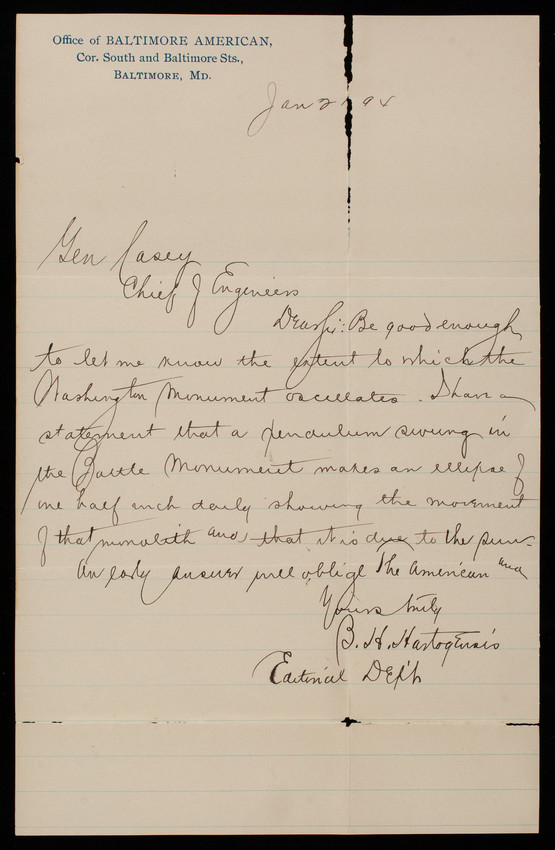 Office of BALTIMORE AMERICAN,
Cor. South and Baltimore Sts.,
BALTIMORE, MD.
Jan 2 94
Gen Casey
Chief of Engineers
Dear Sir: Be good enough
to let me know the extent to which the
Washington Monument oscillates. I have a
statement that a pendulum swung in
the Battle Monument makes an ellipse of
one half inch daily showing the movement
of that monolith and that it is due to the sun.
An early answer will oblige The American and
Yours truly
B. H. Hartogensis
Editorial Dep't